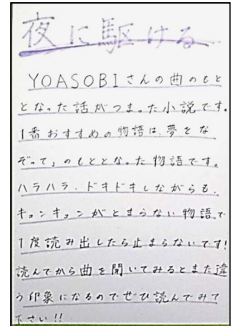 夜に駆ける
YOASOBIさんの曲のもと
となった話がつまった小説です。
1番おすすめの物語は、夢をな
ぞって」のもととなった物語です。
ハラハラ、ドキドキしながらも、
キュンキュンがとまらない物語で
1度読み出したら止まらないです!
読んでから曲を聞いてみるとまた違
う印象になるのでぜひ読んでみて
下さい!!